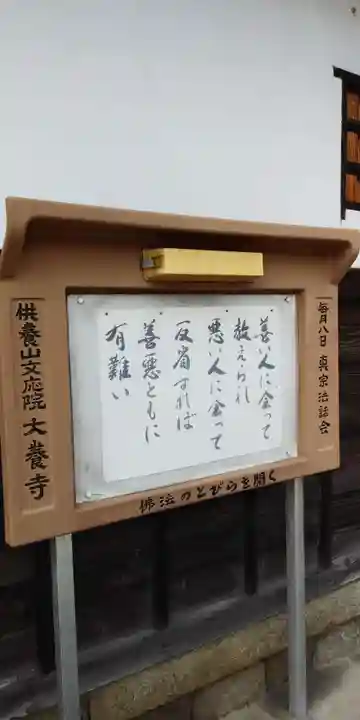 毎月八日 真宗法話会
善い人に会って
教えられ
悪い人に会って
反省すれば
善悪ともに
有難い
供養山文応院 大養寺
佛法のとびらを開く